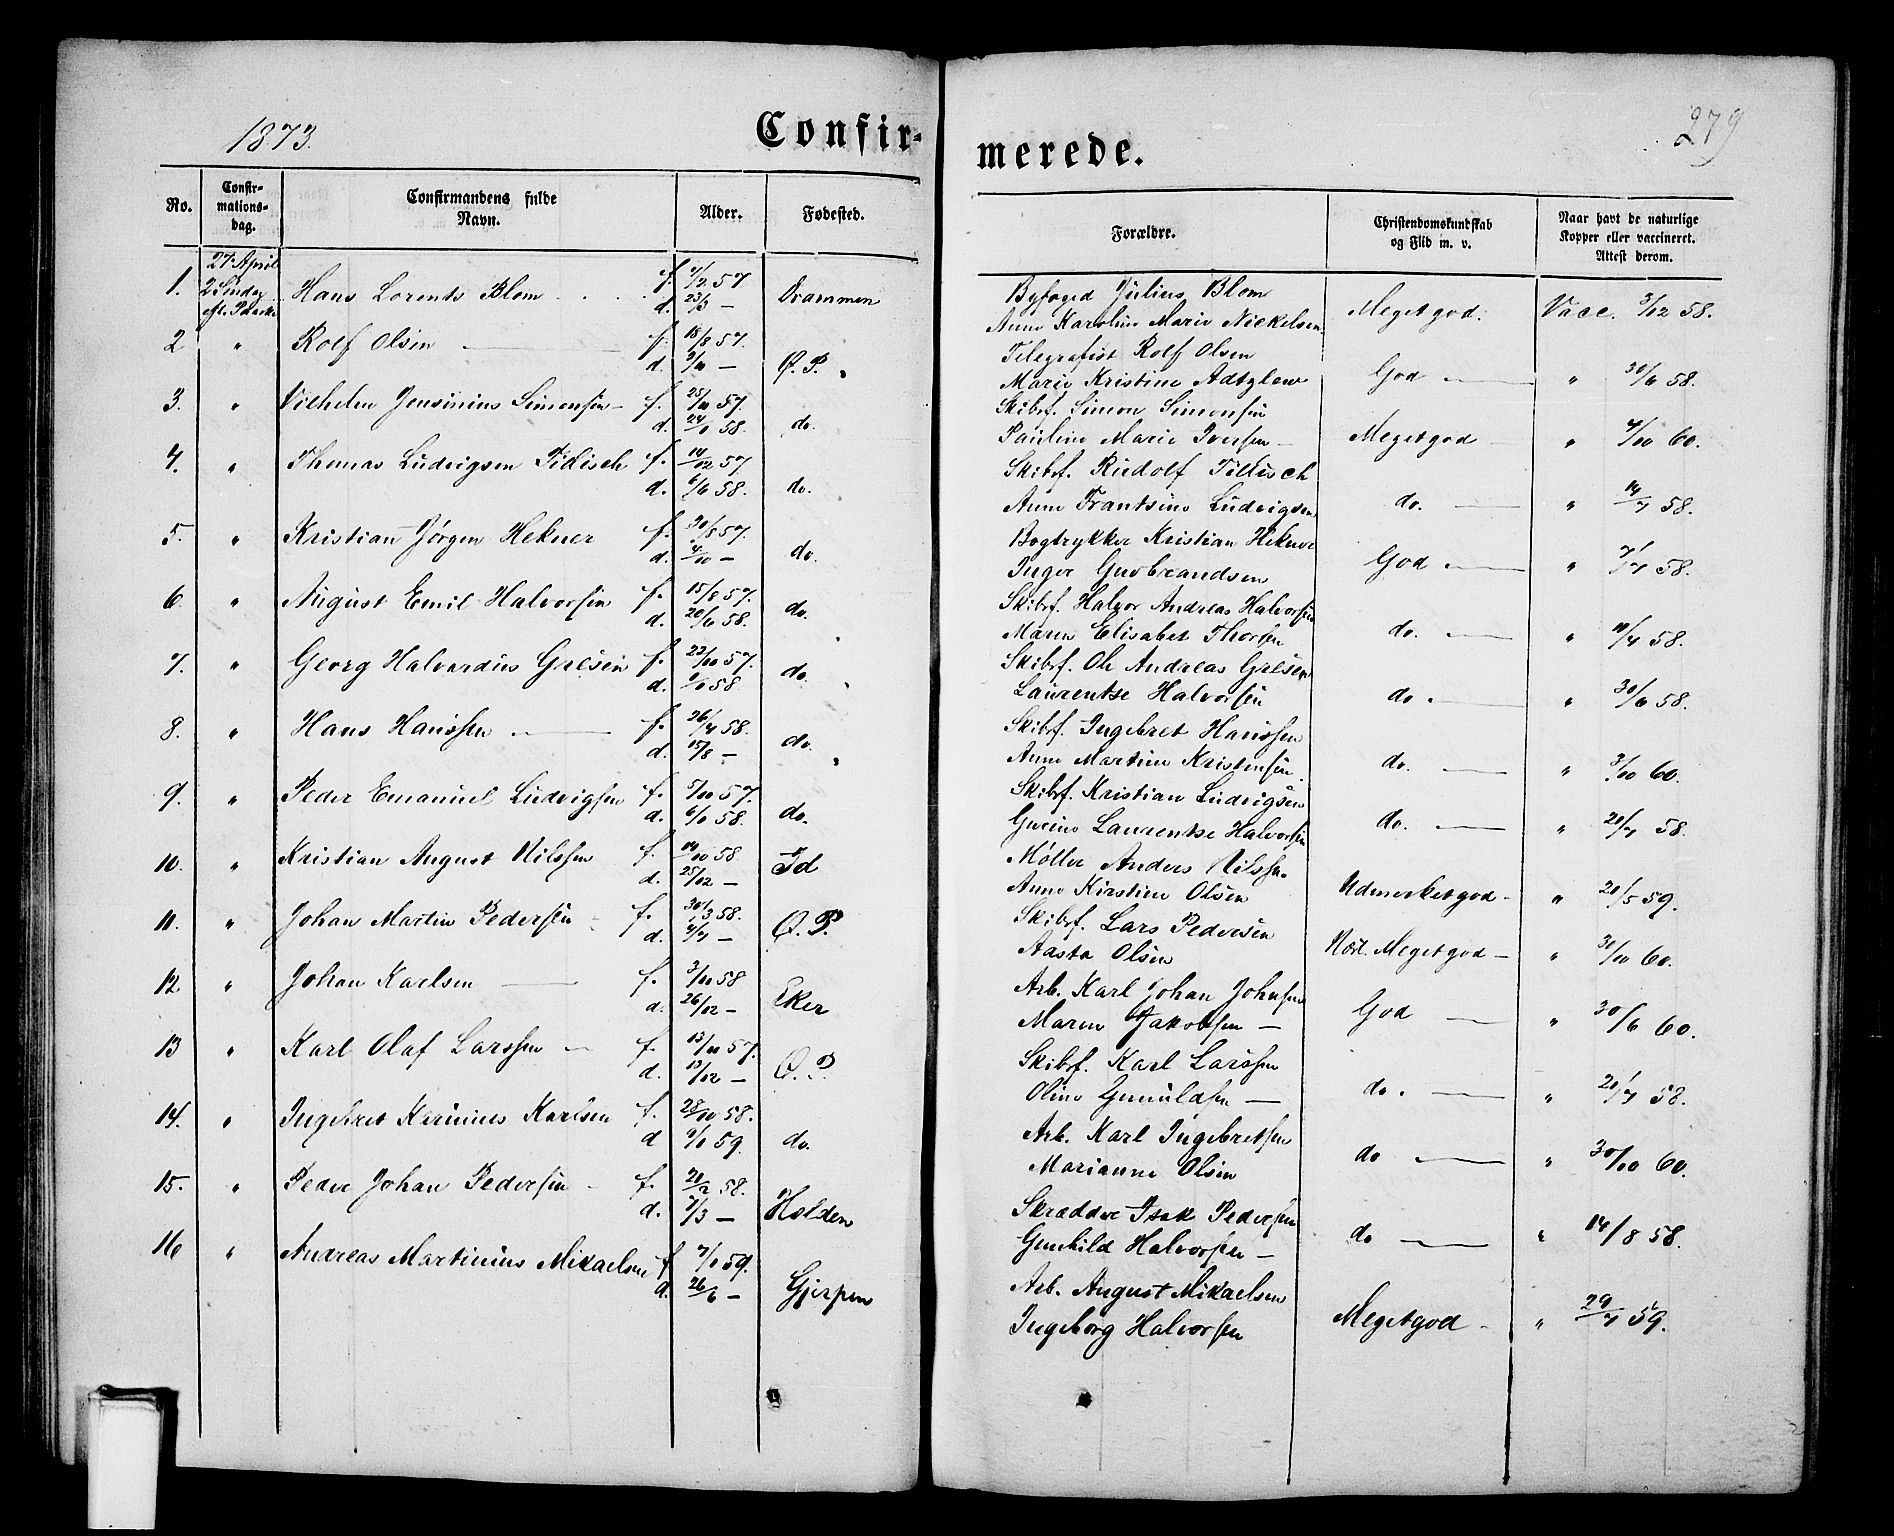 1873.
Confir-
merede.
279
No.
Confir-
mations-
dag.
Confirmandens fulde
Navn.
Alder.
Fødested.
Forældre.
Christendomskundskab
og Flid m. v.
Naar havt de naturlige
Kopper eller vaccineret.
Attest derom.
27 April
2 Søndag
eft. Paaske
1. Hans Lorents Blom f. d. 23/3 — Drammen
Byfoged Julius Blom
Anne Karoline Marie Nickelsen Megetgod. Vacc. 3/12 58.
2 " Rolf Olsen f. 18/8 57. d. — Ø. P.
Telegrafist Rolf Olsen
Marie Kristine God " 30/6 58.
3. " Vilhelm Jensinius Simonsen f. 25/10 57. d. 24/1 58. do.
Skibsf. Simon Simonsen
Pauline Marie Iversen Megetgod " 60.
4. " Thomas Ludvigsen Tidisch f. 14/12 57 d. 6/6 58. do.
Skibsf. Rudolf Tillisch
Anne Frantsine Ludvigsen do. " 14/7 58.
5. " Kristian Jørgen Hekner f. 30/8 57. d. 4/10 — do.
Bogtrykker Kristian Hekner
Inger Gudbrandsen God " 58.
6. " August Emil Halvorsen f. 15/8 57. d. 20/6 58. do.
Skibsf. Halvor Andreas Halvorsen
Maren Elisabet Thorsen do. " 11/4 58.
7. " Georg Halvardus Gresen f. 22/10 57. d. 58. do.
Skibsf. Ole Andreas Gresen
Laurentse Halvorsen do. " 30/6 58.
8. " Hans Hanssen f. 26/4 58. d. 15/8 — do.
Skibsf. Ingebret Hanssen
Anne Martine Kristensen do. " 3/10 60.
9. " Peder Emanuel Ludvigsen f. 5/10 57. d. 6/1 58. do.
Skibsf. Kristian Ludvigsen
Laurentse Halvorsen do. " 20/7 58.
10. " Kristian August Nilssen f. 14/10 58 d. 25/12 — Id
Møller Anders Nilssen
Anne Kirstine Olsen Udmerketgod " 20/5 59.
11. " Johan Martin Pedersen f. 30/3 58. d. — Ø. P.
Skibsf. Lars Pedersen
Aasta Olsen Næst. Megetgod — " 30/10 60.
12 " Johan Karlsen f. 3/10 58 d. 26/12 — Eker
Arb. Karl Johan Johnsen
Maren Jakobsen — God " 30/6 60.
13 " Karl Olaf Larssen f. 13/11 57. d. 13/12 — Ø. P.
Skibsf. Karl Larssen
Oline Gunuldsen — do. " 20/7 58.
14. " Ingebret Karinius Karlsen f. 28/10 58. d 9/1 59. do.
Arb. Karl Ingebretsen
Marianne Olsen do " 30/10 60.
15. " Peder Johan Pedersen f. 20/2 58. d. 7/3 — Holden
Skrædder Isak Pedersen
Gunhild Halvorsen — do " 14/8 58.
16 " Andreas Martinius Mikaelsen f 7/1 59. d. 26/6 — Gjerpen
Arb. August Mikaelsen
Ingeborg Halvorsen Megetgod " 29/7 59.